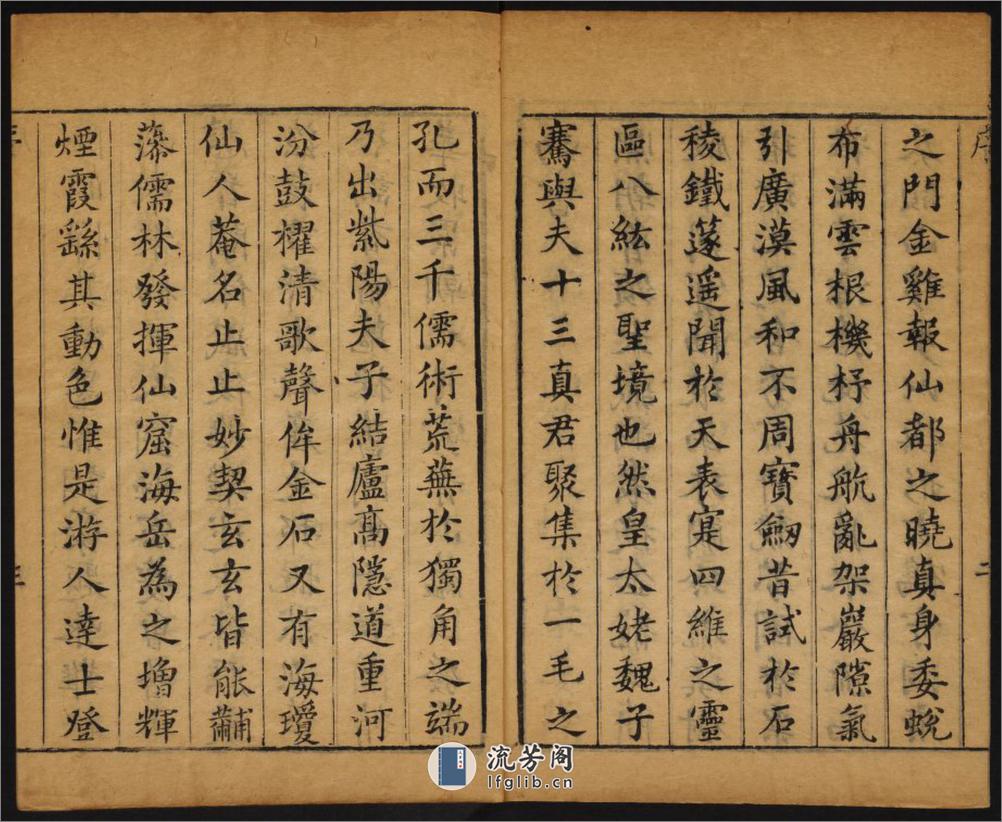 序
二
之門金雞報仙都之曉真身委蛻
布滿雲根機杼舟航亂架巖隙氣
引廣漠風和不周寶劔昔試於石
稜鐵篴遥聞於天表寔四維之靈
區八紘之聖境也然皇太姥魏子
騫與夫十三真君聚集於一毛之
孔而三千儒術荒蕪於獨角之端
乃出紫陽夫子結廬高隱道重河
汾鼓櫂清歌聲侔金石又有海瓊
仙人菴名止止妙契玄玄皆能黼
藻儒林發揮仙窟海岳為之增輝
煙霞繇其動色惟是游人達士登
流芳阁
lfglib.cn